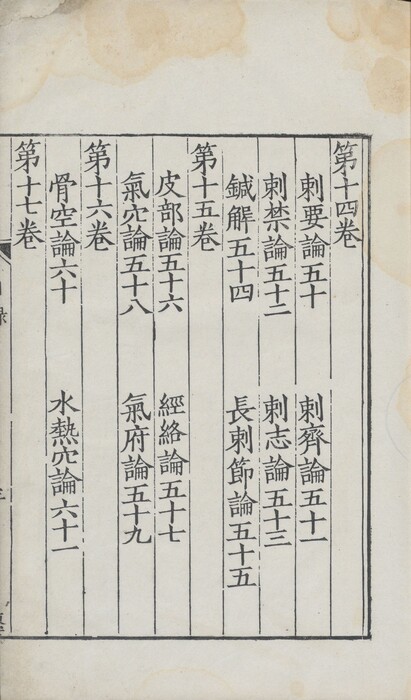 第十四卷
刺要論五十 刺齊論五十一
刺禁論五十二 刺志論五十三
鍼解五十四 長刺節論五十五
第十五卷
皮部論五十六 經絡論五十七
氣穴論五十八 氣府論五十九
第十六卷
骨空論六十 水熱穴論六十一
第十七卷